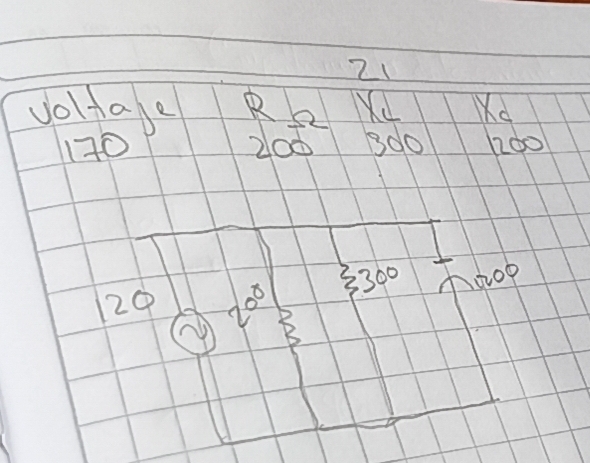 21
Voltaje R Ω XL Xc
170 200 300 1200
120 200 300 1200